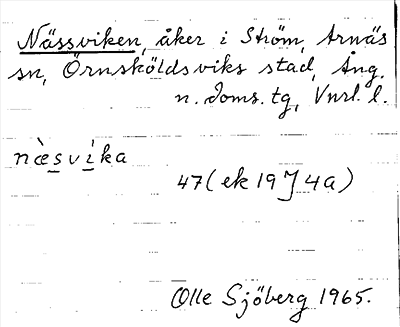 Nässviken, åker i Ström, Arnäs
sn, Örnsköldsviks stad, Ång.
n. doms. tg, Vnrl. l.
næ̀svíka
47 (ek 19 J 4a)
Olle Sjöberg 1965.